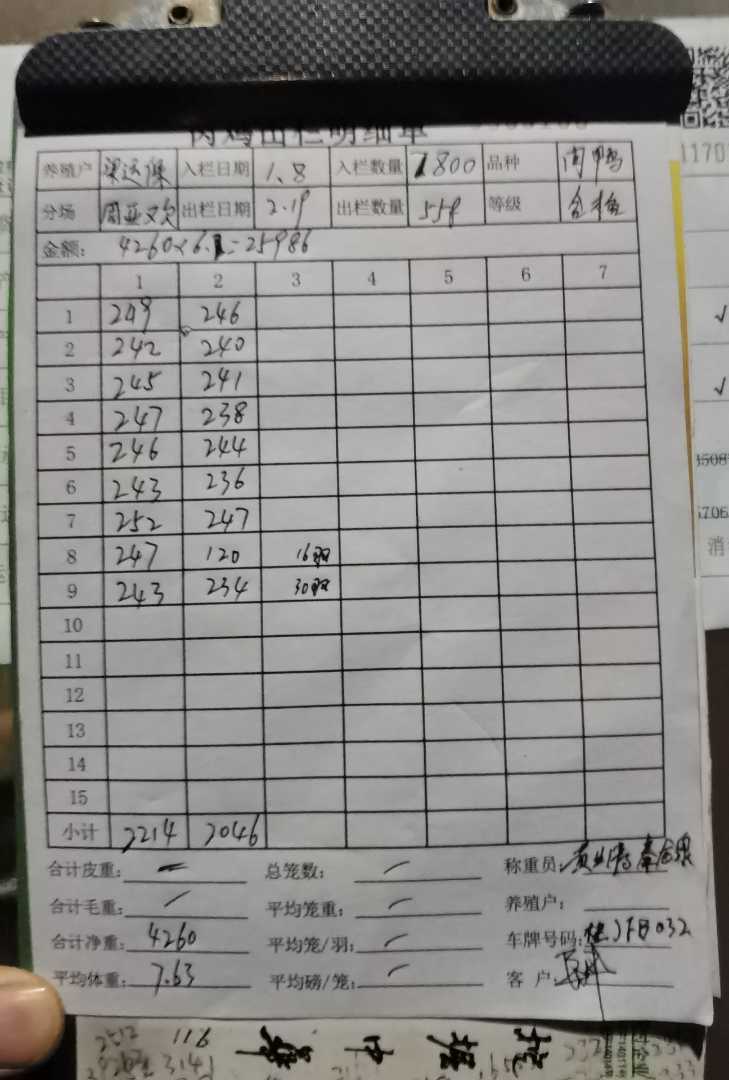 肉鸡出栏明细单
养殖户 梁运保 入栏日期 1.8 入栏数量 1800 品种 肉鸭
分场 出栏日期 2.19 出栏数量 558 等级 合格
金额: 4260×6.1=25986
1 2 3 4 5 6 7
1 249 246
2 242 240
3 245 241
4 247 238
5 246 244
6 243 236
7 252 247
8 247 120 16羽
9 243 234 30羽
10
11
12
13
14
15
小计 2214 2046
合计皮重: 总笼数: 称重员:
合计毛重: 平均笼重: 养殖户:
合计净重: 4260 平均笼/羽: 车牌号码: 桂JFB032
平均体重: 7.63 平均磅/笼: 客 户:
1170
3508
5706
消
2512 116
3141
中